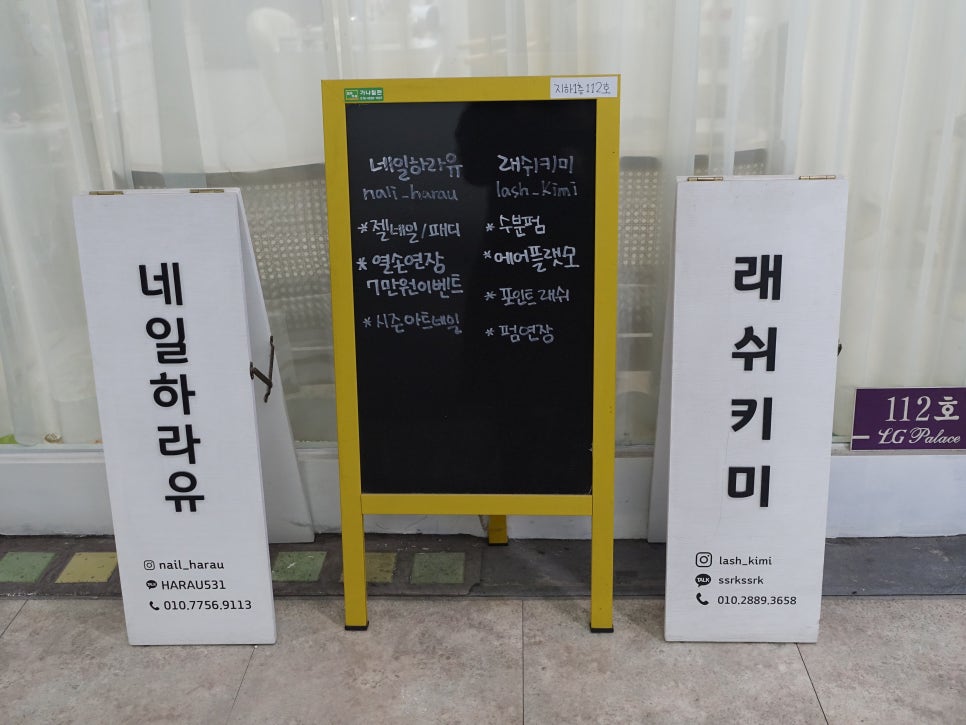 네일하라유
nail_harau
HARAU531
010.7756.9113
가나칠판
지하1층 112호
네일하라유
nali_harau
*젤네일/패디
*열손연장
7만원이벤트
*시즌아트네일
래쉬키미
lash_kimi
*수분펌
*에어플랫모
*포인트래쉬
*펌연장
래쉬키미
lash_kimi
TALK
ssrkssrk
010.2889.3658
112호
LG Palace